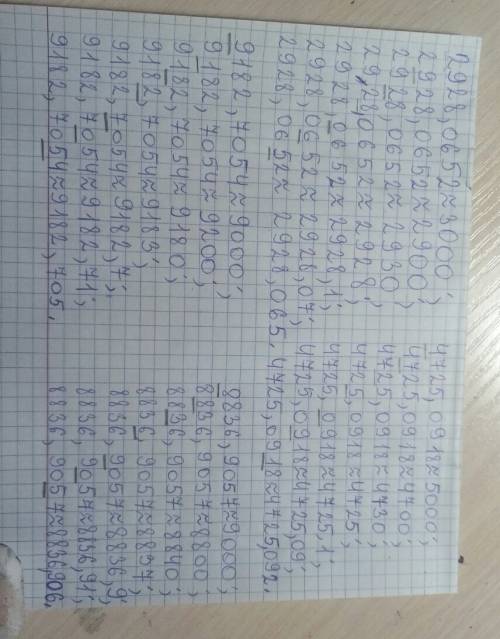 2928,0652≈3000; 4725,0918≈5000;
2928,0652≈2900; 4725,0918≈4700;
2928,0652≈2930; 4725,0918≈4730;
2928,0652≈2928; 4725,0918≈4725;
2928,0652≈2928,1; 4725,0918≈4725,1;
2928,0652≈2928,07; 4725,0918≈4725,09;
2928,0652≈2928,065. 4725,0918≈4725,092.
9182,7054≈9000; 8836,9057≈9000;
9182,7054≈9200; 8836,9057≈8800;
9182,7054≈9180; 8836,9057≈8840;
9182,7054≈9183; 8836,9057≈8837;
9182,7054≈9182,7; 8836,9057≈8836,9;
9182,7054≈9182,71; 8836,9057≈8836,91;
9182,7054≈9182,705. 8836,9057≈8836,906.